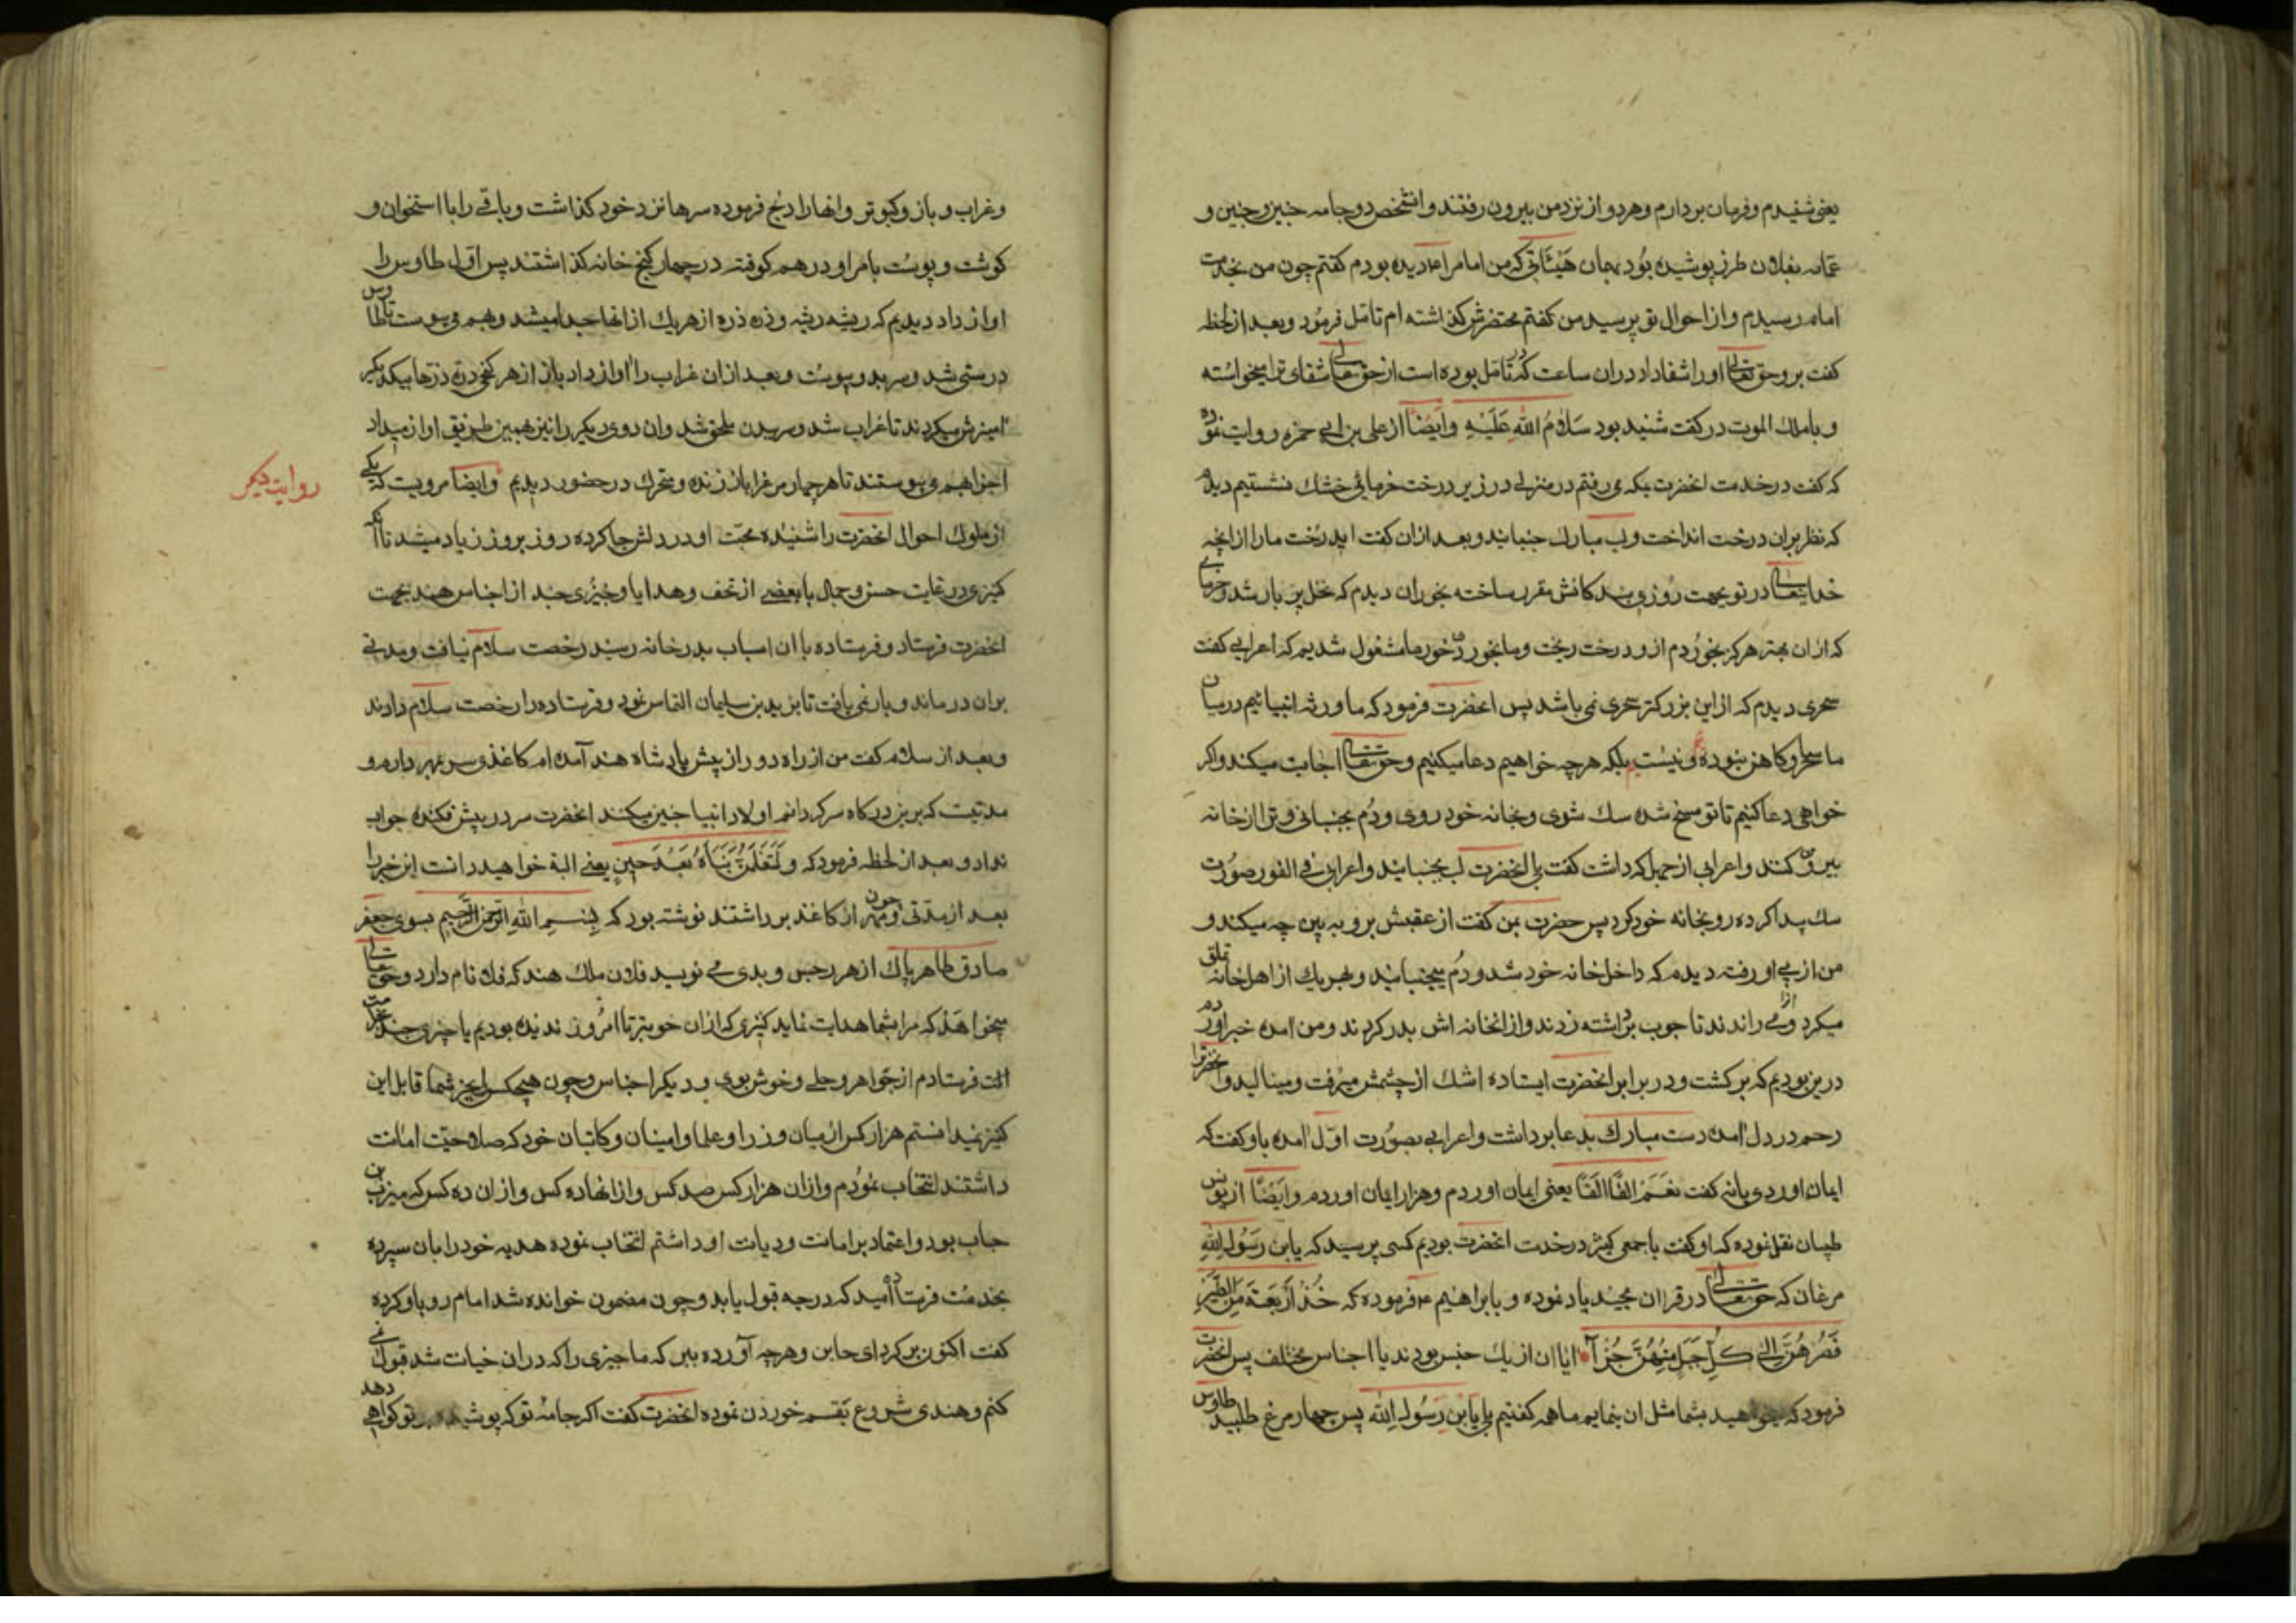 یعنی شنیدم و فرمان بردارم و هر دو از نزد من بیرون رفتند و انشخص دو جامه چنین و چنین و
عمامه بفلان طرز پوشیده بود بهمان هیئاتی که من امام را دیده بودم کفتم چون من بخدمت
امام رسیدم و از احوال تو پرسید من کفتم محتضرش کذاشته ام تامل فرمود و بعد از لحظه
کفت برو حق تعالی او را شفا داد دران ساعت که در تامل بوده است از حق تعالی شفای ترا میخواسته
و با ملک الموت در کفت شنید بود سَلامُ اللهِ عَلَیْهِ وَاَیضًا از علی بن ابی حمزه روایت نموده
که کفت در خدمت انحضرت بمکه می رفتم در منزلی در زیر درخت خرمائی خشک نشستیم دیدم
که نظر بران درخت انداخت و لب مبارک جنبانید و بعد ازان کفت ایدرخت ما را از انچه
خدایتعالی در تو بجهت روزی بندکانش مقرر ساخته بخوران دیدم که نخل پر بار شد و خرمای
که ازان بهتر هرکز نخوردم ازو درخت ریخت و ما بخوردن خورما مشغول شدیم که اعرابی کفت
سحری دیدم که از این بزرکتر سحری نمی باشد پس انحضرت فرمود که ما ورثه انبیائیم در میان
ما ساحر و کاهن نبوده و نیست بلکه هر چه خواهیم دعا میکنیم و حق تعالی اجابت میکند و اکر
خواهی دعا کنیم تا تو مسخ شده سک شوی و بخانه خود روی و دُم بجنبانی و ترا از خانه
بیرون کنند و اعرابی از جهلی که داشت کفت بلی انحضرت لب بجنبانید و اعرابی فی الفور صورت
سک پیدا کرده رو بخانه خود کرد پس حضرت بمن کفت از عقبش برو به بین چه میکند و
من از پی او رفته دیدم که داخل خانه خود شد و دُم میجنبانید و بهر یک از اهل خانه تملق
میکرد و او را می راندند تا چوب برداشته زدند و از انخانه اش بدر کردند و من امده خبر اوردم
درین بودیم که برکشت و در برابر انحضرت ایستاده اشک از چشمش میرفت و مینالید و انحضرترا
رحم در دل امده دست مبارک بدعا برداشت و اعرابی بصورت اول امده باو کفت که
ایمان اوردی یا نه کفت نَعَمْ اَلفًا اَلفًا یعنی ایمان اوردم و هزار ایمان اوردم وَاَیضًا از یونس
ظبیان نقل نموده که او کفت با جمعی کثیر در خدمت انحضرت بودیم کسی پرسید که یابن رَسُولِ اللهِ
مرغان که حق تعالی در قران مجید یاد نموده و بابراهیم ع فرموده که خُذْ اَرْبَعَةً مِنَ الطَّیْرِ
فَصُرْهُنَّ اِلی کُلِّ جَبَلٍ مِنْهُنَّ جُزْاً ایا ان از یک جنس بودند یا اجناس مختلف پس انحضرت
فرمود که میخواهید بشما مثل ان بنمایم ما همه کفتیم بلی یابن رَسُولِ الله پس چهار مرغ طلبید طاوس
و غراب و باز و کبوتر و انها را ذبح فرموده سرها نزد خود کذاشت و باقی را با استخوان و
کوشت و پوست بامر او در هم کوفته در چهار کنج خانه کذاشتند پس اول طاوس را
اواز داد دیدیم که ریشه ریشه و ذره ذره از هر یک از انها جدا میشد و بهم می پیوست تا طاوس
درستی شد و سر بدو پیوست و بعد ازان غراب را اواز داد باز از هر کنجی ذره ذرها بیکدیکر
امیزش میکردند تا غراب شد و سر بدن ملحق شد وان دوی دیکر را نیز بهمین طریق اواز میداد
اجزا بهم می پیوستند تا هر چهار مرغ را باز زنده و متحرک در حضور دیدیم وایضا مرویست که یکی
روایت دیکر
از ملوک احوال انحضرت را شنیده محبت او در دلش جا کرده روز بروز زیاد میشد تا انکه
کنیزی در غایت حسن و جمال با بعضی از تحف و هدایا و چیزی چند از اجناس هند بجهت
انحضرت فرستاد و فرستاده با ان اسباب بدر خانه رسید رخصت سلام نیافت و مدتی
بران در ماند و بار نمی یافت تا یزید بن سلیمان التماس نمود و فرستاده را رخصت سلام دادند
و بعد از سلام کفت من از راه دور از پیش پادشاه هند آمده ام کاغذی سر بمهر دارم و
مدتیست که برین درکاه سرکردانم اولاد انبیا چنین میکنند انحضرت سر در پیش فکنده جواب
نداد و بعد از لحظه فرمود که وَلَتَعْلَمُنَّ نَبَاَهُ بَعْدَ حینٍ یعنی البته خواهید دانست این خبر را
بعد از مدتی و چون مهر از کاغذ برداشتند نوشته بود که بِسمِ اللهِ الرَّحمنِ الرَّحیم بسوی جعفر
صادق طاهر پاک از هر رجس و بدی می نویسد فلان ملک هند که فلان نام دارد و حق تعالی
میخواهد که مرا بشما هدایت نماید کنیزی که ازان خوبتر تا امروز ندیده بودیم با چیزی چند بخدمت
الت فرستادم از جواهر و حلی و خوش بوی و دیکر اجناس و چون هیچکس را بجز شما قابل این
کنیز نمیدانستم هزار کس از میان وزرا و علما و امینان و کاتبان خود که صلاحیت امانت
داشتند انتخاب نمودم و ازان هزار کس صد کس و از انها ده کس و ازان ده کس که میزب بن
حباب بود و اعتماد بر امانت و دیانت او داشتم انتخاب نموده هدیه خود را بان سپرده
بخدمت فرستاده امید که درجه قبول یابد و چون مضمون خوانده شد امام رو باو کرده
کفت اکنون برکرد ای خاین و هر چه آورده ببر که ما چیزی را که دران خیانت شد قبول نمی
کنم و هندی شروع بقسم خوردن نموده انحضرت کفت اکر جامه تو که پوشیده بر تو کواهی دهد